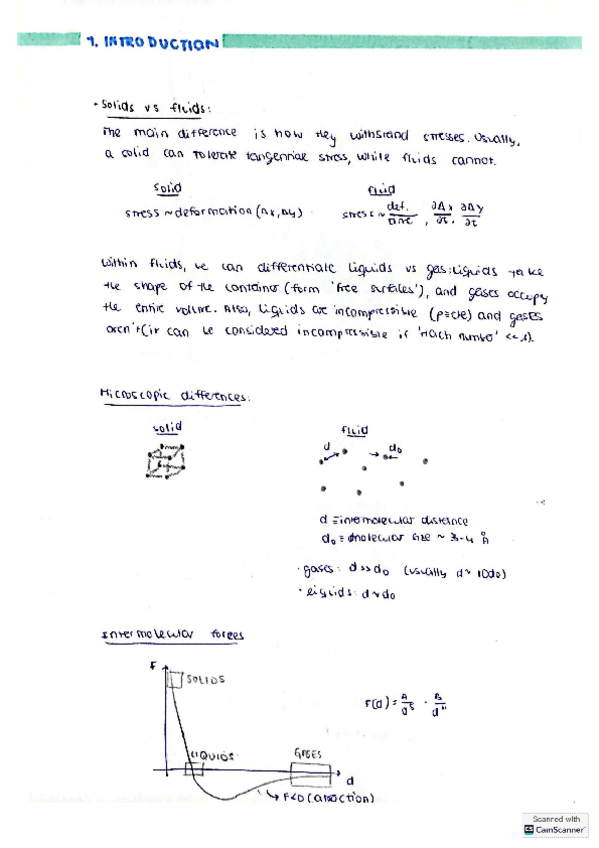 1. INTRODUCTION
· Solids vs fluids:
The main difference is how they withstand stresses. Usually,
a solid can tolerate tangential stress, while fluids cannot.
solid fluid
stress ~ deformation (Δx, Δy) stress ~ def./time, ∂Δx/∂t, ∂Δy/∂t
Within fluids, we can differentiate liquids vs gas: liquids take
the shape of the container (form 'free surfaces'), and gases occupy
the entire volume. Also, liquids are incompressible (ρ≡cte) and gases
aren't (it can be considered incompressible if 'Mach number' << 1).
Microscopic differences:
solid fluid
d d₀
d ≡ intermolecular distance
d₀ ≡ molecular size ~ 3-4 Å
· gases: d >> d₀ (usually d ~ 10d₀)
· liquids: d ~ d₀
Intermolecular forces
F
SOLIDS
F(d) =
LIQUIDS GASES
d
F<0 (attraction)
Scanned with
CS CamScanner